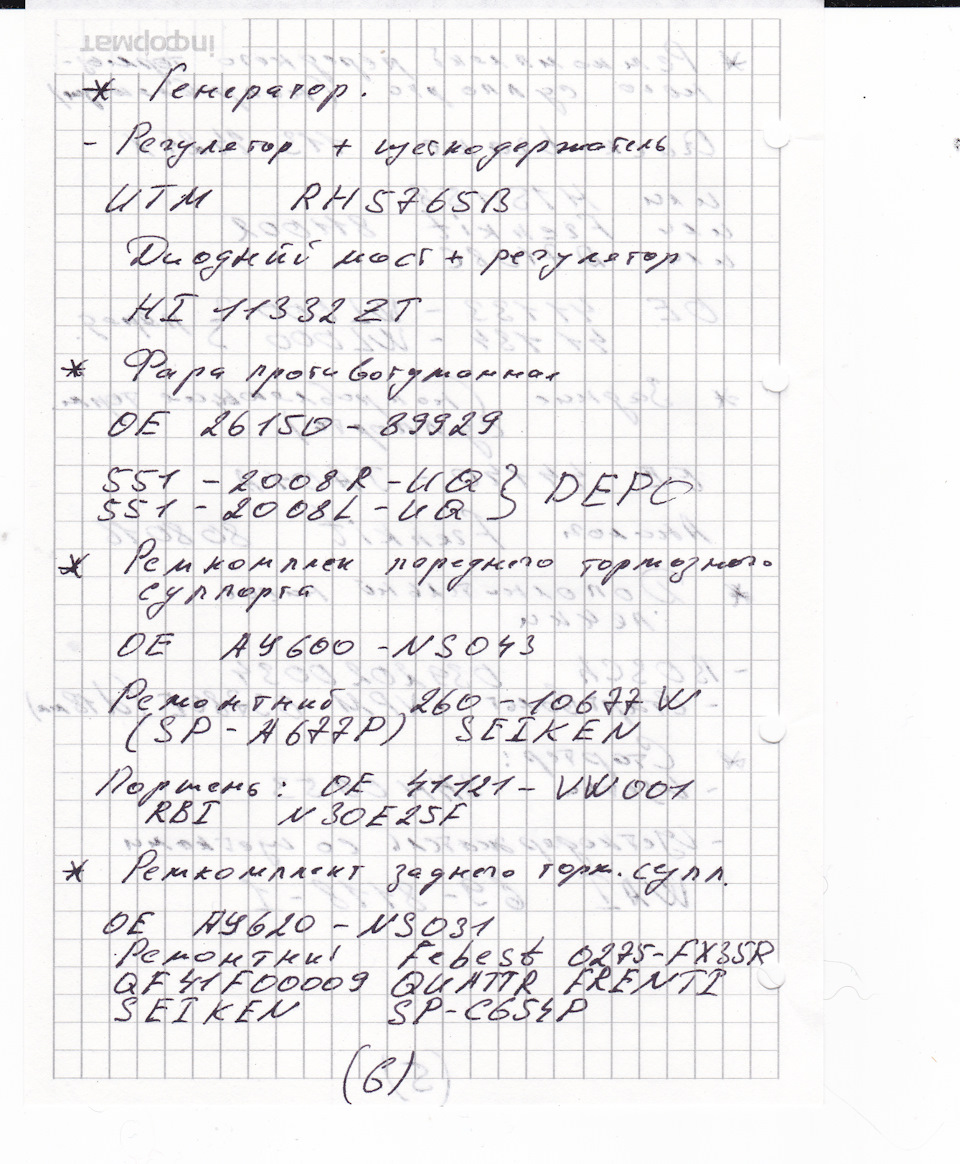 * Генератор.
- Регулятор + щеткодержатель
UTM RH5765B
Диодний мост + регулятор
HI 11332ZT
* Фара противотуманная
OE 26150-89929
551-2008R-UQ } DEPO
551-2008L-UQ
* Ремкомплек переднего тормозного
суппорта
OE AY600-NS043
Ремонтний 260-10677W
(SP-A677P) SEIKEN
Поршень: OE 41121-VW001
RBI N30E25F
* Ремкомплект заднего торм. супп.
OE AY620-NS031
Ремонтний Febest 0275-FX35R
QF41F00009 QUATTR FRENTI
SEIKEN SP-C654P
(6)